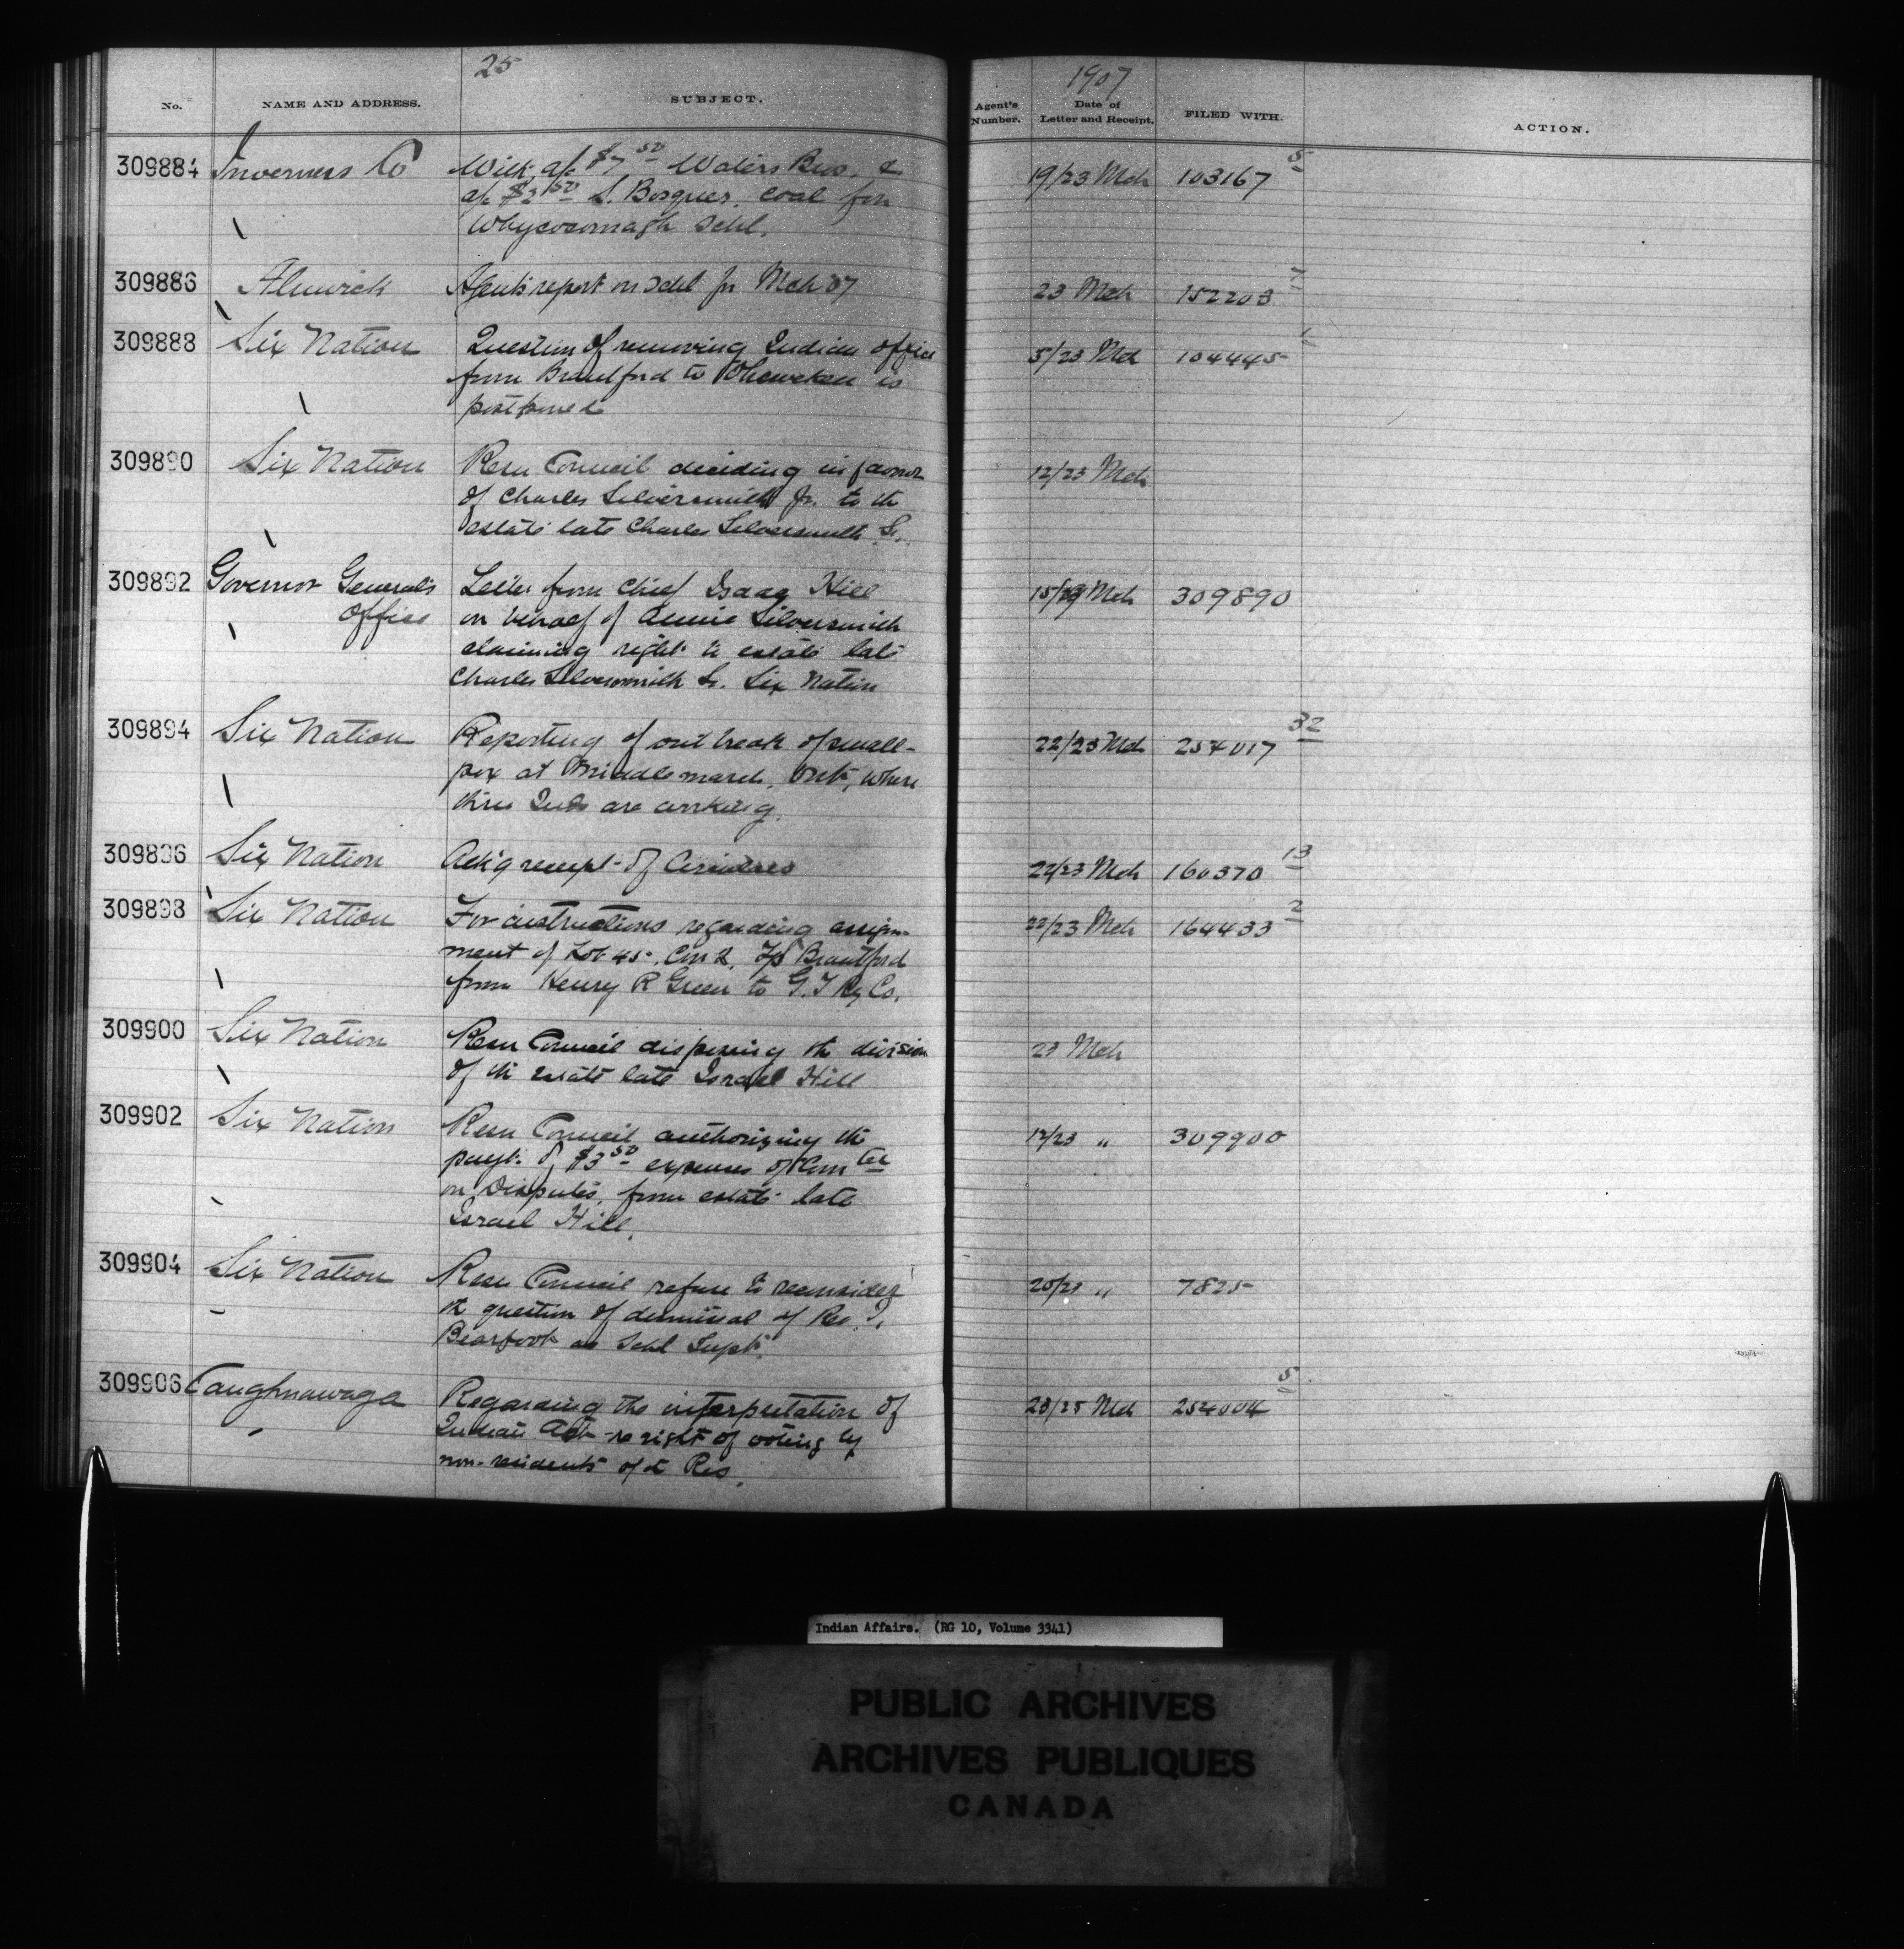 25
1907
No. NAME AND ADDRESS. SUBJECT. Agent's Number. Date of Letter and Receipt. FILED WITH. ACTION.
309884 Inverness Co With a/c $7 50 Waters Bros. & 19/23 Mch 103167 5
a/c $2 50 coal for
Whycocomagh Schl.
309886 Alnwick Agents report on Schl for Mch 07 23 Mch 152203 7
309888 Six Nation Question of removing Indian office 5/23 Mch 104445 1
from Brantford to Ohsweken is
postponed
309890 Six Nation Resn Council deciding in favor 12/23 Mch
of Charles Silversmith Jr. to the
estate late Charles Silversmith Sr.
309892 Governor General's Letter from Chief Isaac Hill 15/23 Mch 309890
Office on behalf of Annie Silversmith
claiming right to estate late
Charles Silversmith Sr. Six Nation
309894 Six Nation Reporting of outbreak of small- 22/23 Mch 254017 32
pox at Middlemarch, Ont, where
three Inds are working.
309896 Six Nation Ack'g receipt of 22/23 Mch 160370 13
309898 Six Nation For instructions regarding assign- 22/23 Mch 164433 2
ment of Lot 45, Con 2, T/S Brantford
from Henry R Green to G.T Ry Co.
309900 Six Nation Resn Council the division 23 Mch
of th estate late Israel Hill
309902 Six Nation Resn Council authorizing th 12/23 " 309900
payt. of $3 50 expenses of Com tee
on Disputes, from estate late
Israel Hill.
309904 Six Nation Resn Council refuse to reconsider 20/23 " 7825
th question of dismissal of Rev. I.
Bearfoot as Schl Supt.
309906 Caughnawaga Regarding the interpretation of 23/25 Mch 254004 5
Indian Act re right of voting by
non-residents of Res.
Indian Affairs. (RG 10, Volume 3341)
PUBLIC ARCHIVES
ARCHIVES PUBLIQUES
CANADA